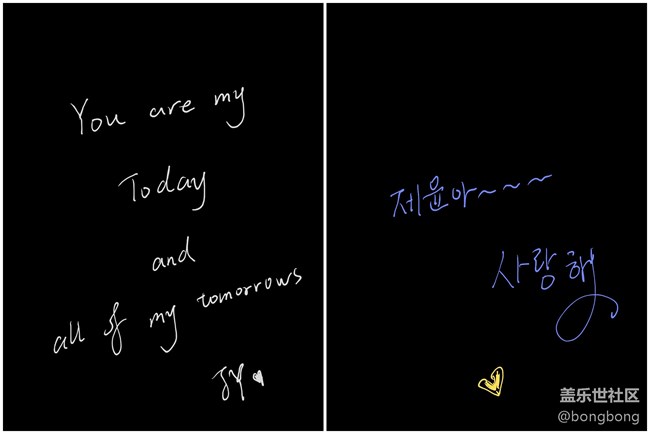 You are my
Today
and
all of my tomorrows
JY
제윤아~~~
사랑해
盖乐世社区
@bongbong